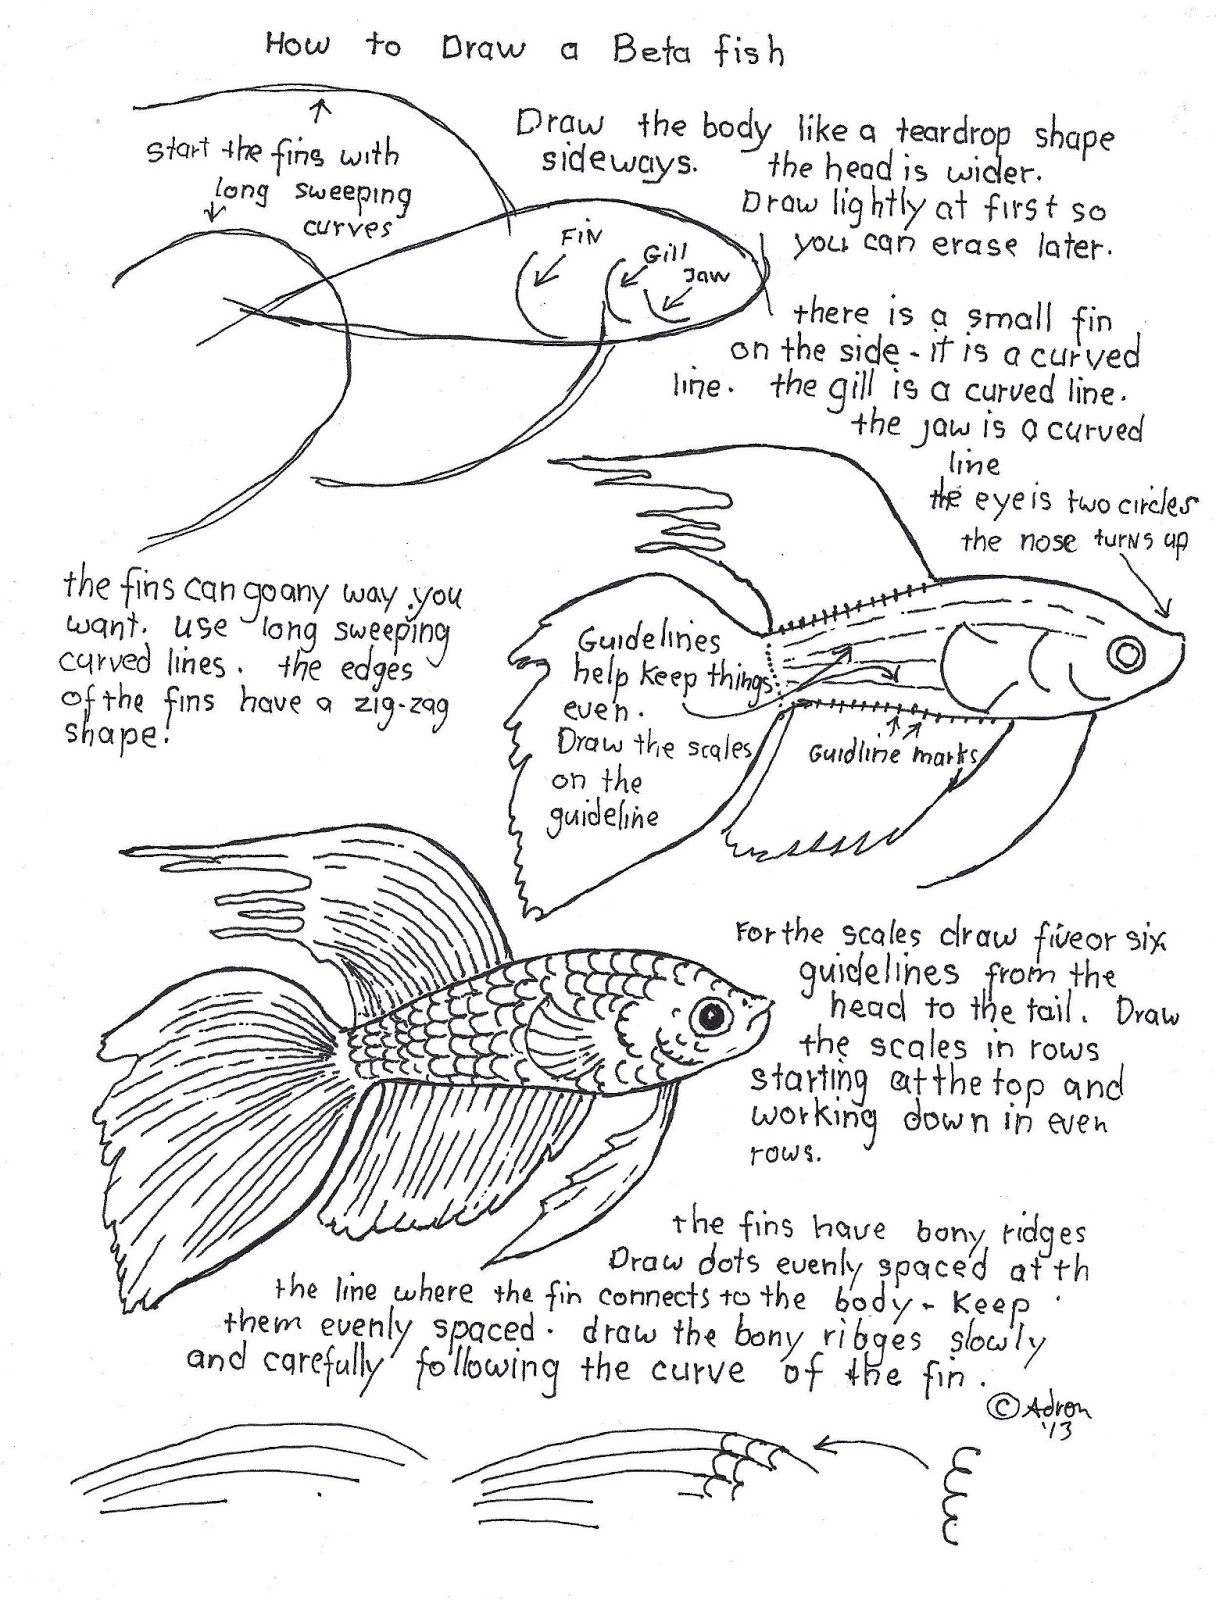 How to Draw a Beta fish
Start the fins with
long sweeping
curves
Draw the body like a teardrop shape
sideways. the head is wider.
Draw lightly at first so
you can erase later.
Fin
Gill
Jaw
there is a small fin
on the side - it is a curved
line. the gill is a curved line.
the jaw is a curved
line
the eye is two circles
the nose turns up
the fins can go any way you
want. use long sweeping
curved lines. the edges
of the fins have a zig-zag
shape!
Guidelines
help keep things
even.
Draw the scales
on the
guideline
Guidline marks
For the scales draw five or six
guidelines from the
head to the tail. Draw
the scales in rows
starting at the top and
working down in even
rows.
the fins have bony ridges
Draw dots evenly spaced at th
the line where the fin connects to the body - keep
them evenly spaced. draw the bony ribges slowly
and carefully following the curve of the fin.
© Adron
'13